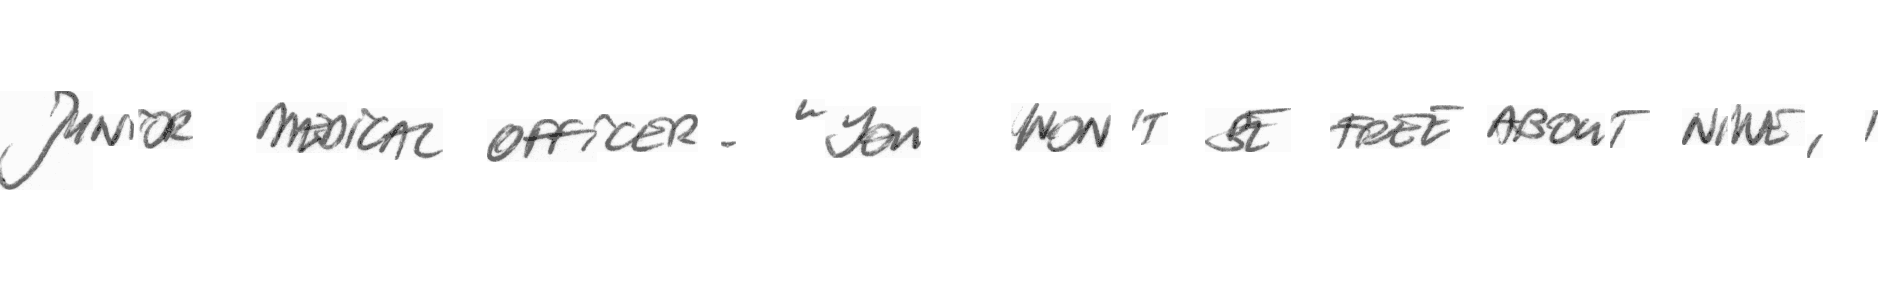 JUNIOR MEDICAL OFFICER. "YOU WON'T BE FREE ABOUT NINE, I